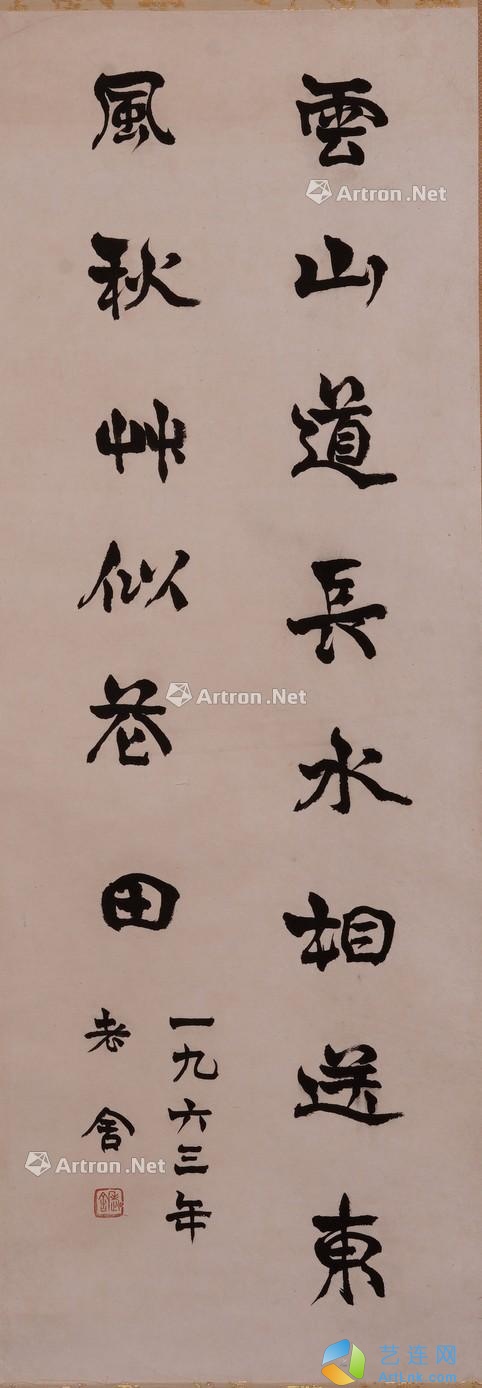 雲山道長水相送東
風秋艸似花田
一九六三年
老舍
老舍
Artron.Net
Artron.Net
Artron.Net
艺连网
ArtLnk.com